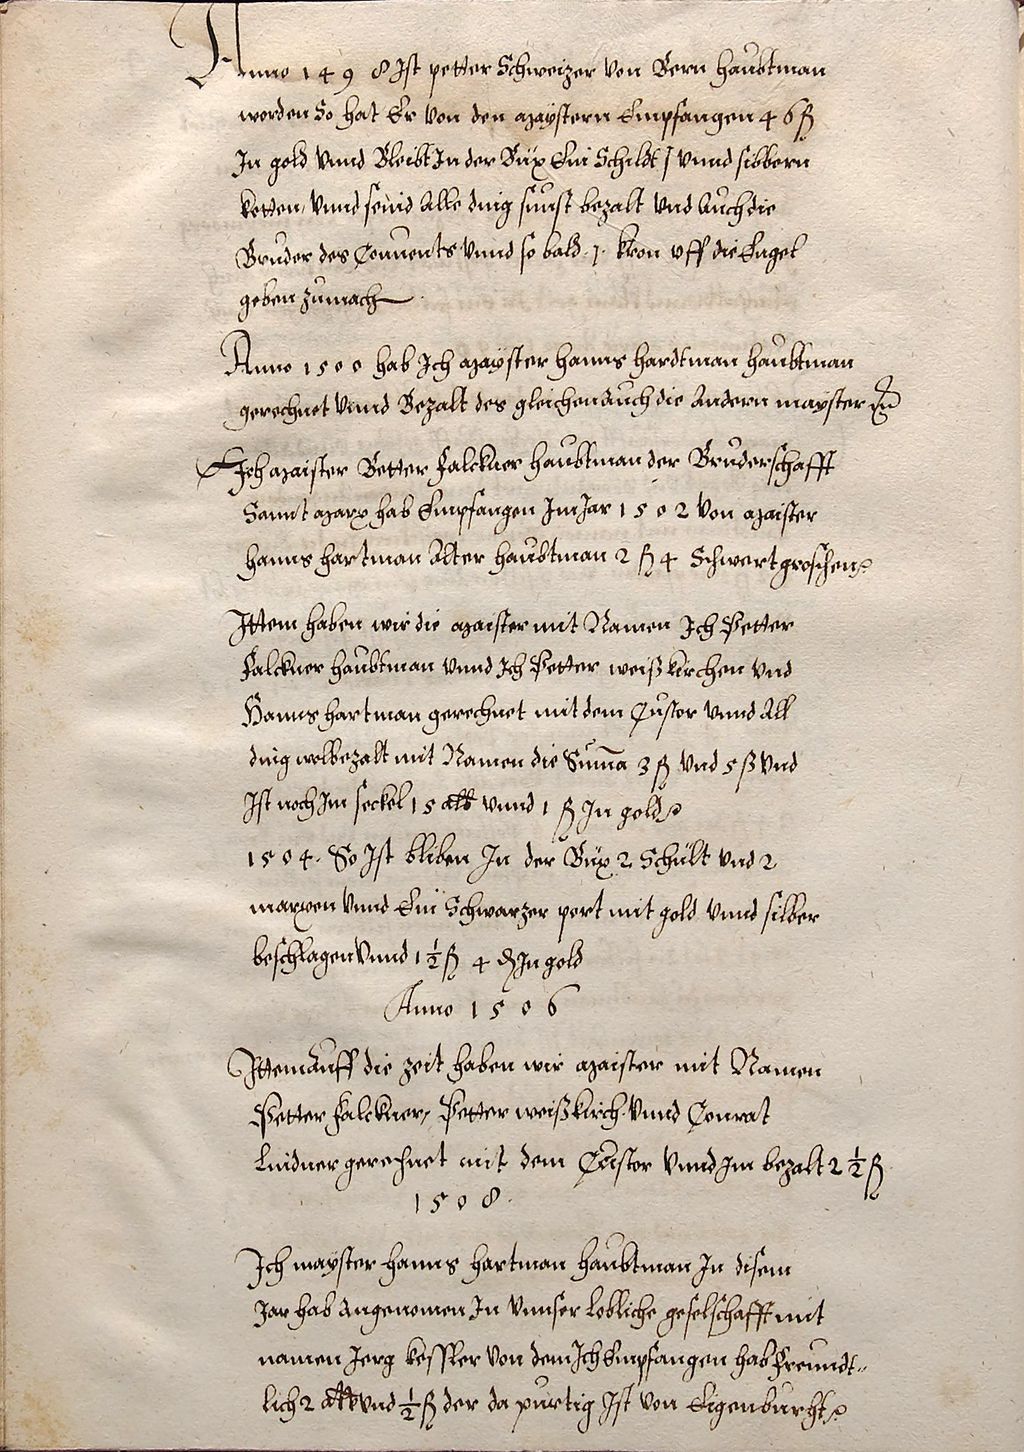 Anno 1498 Ist petter Schweizer von Bern haubtman
worden So hat Er von den maystern Empfangen 46 fl
In gold vnnd Bleibt In der Büx Ein Schildt / vnnd silbern
ketten, vnnd seind Alle ding sunst bezalt vnd Auch die
Bruder des Conuents vnnd so bald .j. kron vff die Engel
geben zumach
Anno 1500 hab Ich mayster hanns hardtman haubtman
gerechnet vnnd Bezalt des gleichen Auch die Andern mayster
Ich maister Better Falckner haubtman der Bruderschafft
Sannt marx hab Empfangen Im Jar 1502 von maister
hanns hartman Alter haubtman 2 fl 4 Schwertgroschen
Ittem haben wir die maister mit Namen Ich Petter
Falckner haubtman vnnd Ich Petter weißkirchen vnd
Hanns hartman gerechnet mit dem Custor vnnd All
ding wolbezalt mit Namen die Suma 3 fl vnd 5 ß vnd
Ist noch Im seckel 15 alb vnnd 1 fl In gold
1504. So Ist bliben In der Büx 2 Schült vnd 2
marxen vnnd Ein Schwarzer port mit gold vnnd silber
beschlagen vnnd 1½ fl 4 ₰ In gold
Anno 1506
Ittem Auff die zeit haben wir maister mit Namen
Petter Falckner, Petter weißkirch vnnd Conrat
Lindner gerechnet mit dem Custor vnnd Im bezalt 2½ fl
1508.
Ich mayster hanns hartman haubtman In disem
Jar hab Angenomen In vnnser lobliche geselschafft mit
namen Jerg kessler von dem Ich Empfangen hab Freundt-
lich 2 alb vnd ½ fl der da purtig Ist von Eigenburcht